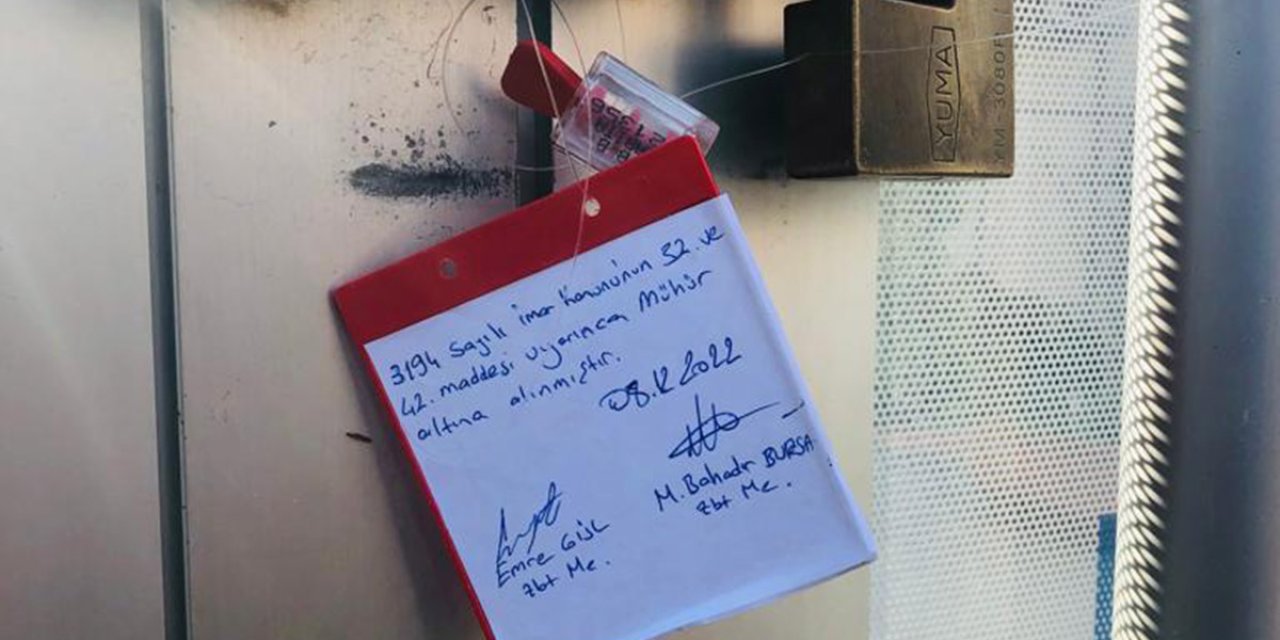 YUMA
YM-3080F
3194 Sayılı İmar Kanununun 32. ve
42. maddesi uyarınca Mühür
altına alınmıştır.
08.12 2022
M. Bahadır BURSA
Zbt Me.
Emre
Zbt Me.